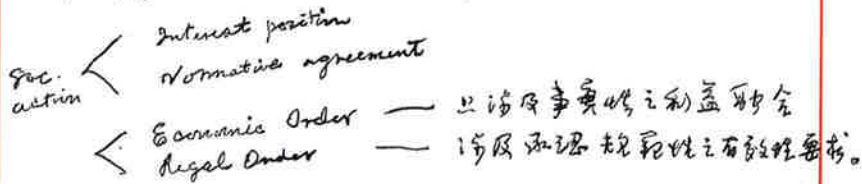 Soc. action
Interest position
Normative agreement
Economic Order — 只涉及事實性之利益聯合
Legal Order — 涉及承認規範性之有效性要求。